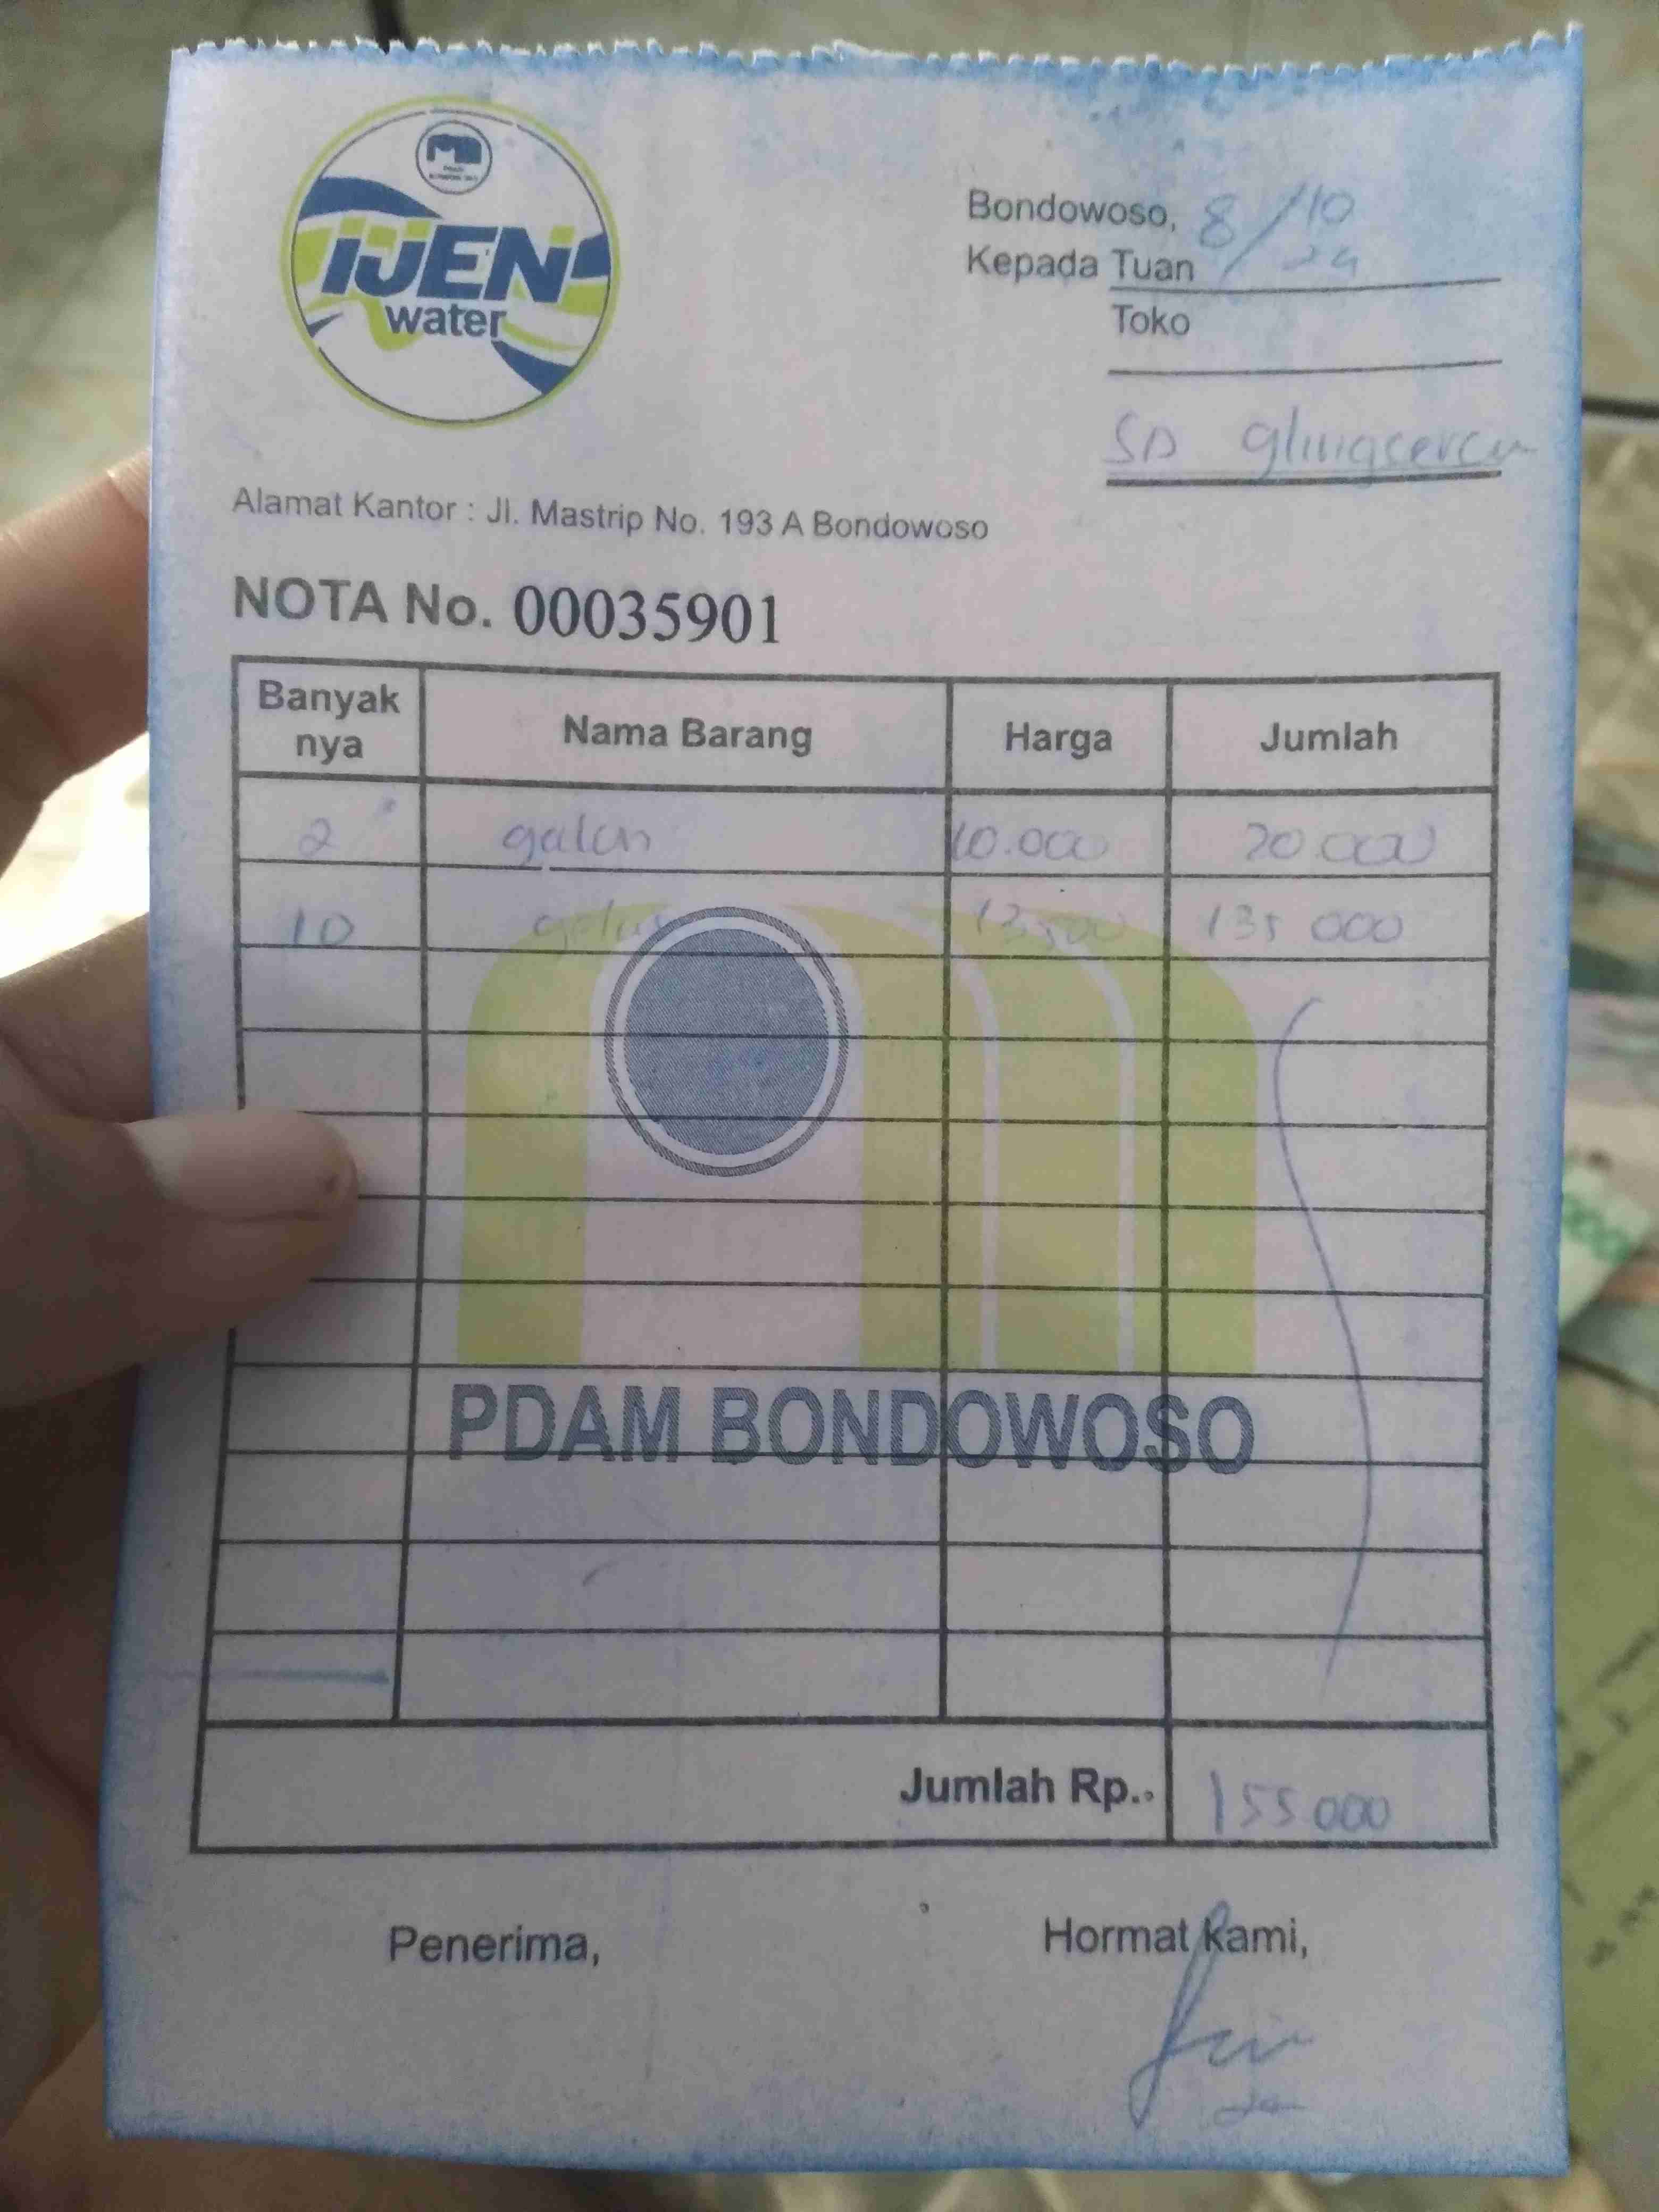 IJEN
water
Bondowoso, 8/10
24
Kepada Tuan
Toko
SD
Alamat Kantor : Jl. Mastrip No. 193 A Bondowoso
NOTA No. 00035901
Banyak nya Nama Barang Harga Jumlah
2 galon 10.000 20.000
10 galon 13500 135 000
PDAM BONDOWOSO
Jumlah Rp.. 155 000
Penerima, Hormat kami,